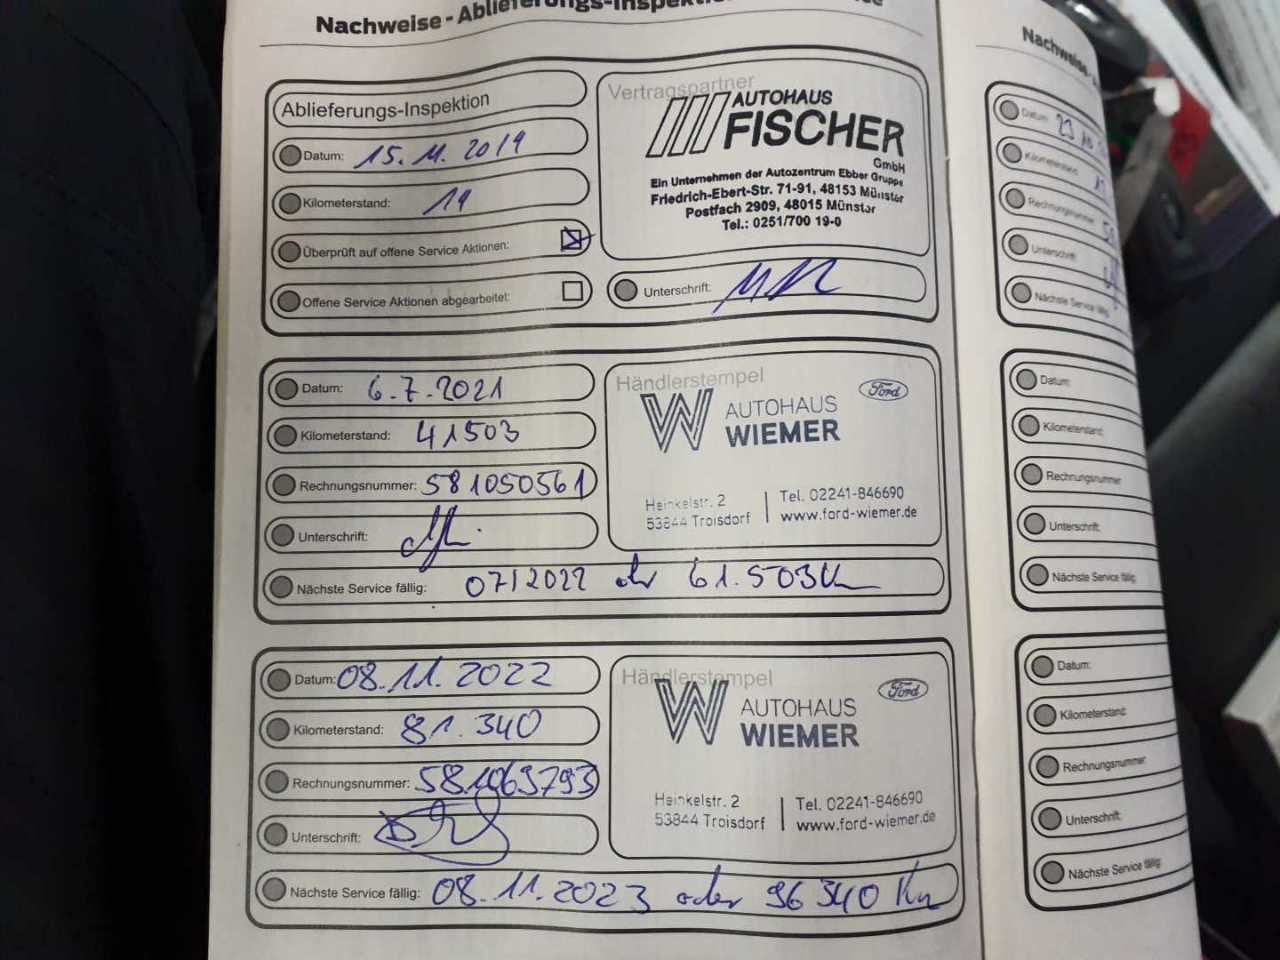 Nachweise - Ablieferungs-Inspekti
Ablieferungs-Inspektion
Datum: 15.11.2019
Kilometerstand: 19
Überprüft auf offene Service Aktionen:
Offene Service Aktionen abgearbeitet:
Vertragspartner
AUTOHAUS
FISCHER
GmbH
Ein Unternehmen der Autozentrum Ebber Gruppe
Friedrich-Ebert-Str. 71-91, 48153 Münster
Postfach 2909, 48015 Münster
Tel.: 0251/700 19-0
Unterschrift:
Datum: 6.7.2021
Kilometerstand: 41503
Rechnungsnummer: 581050561
Unterschrift:
Händlerstempel
Ford
AUTOHAUS
WIEMER
Heinkelstr. 2
53844 Troisdorf
Tel. 02241-846690
www.ford-wiemer.de
Nächste Service fällig: 07/2022 odr 61.503 Km
Datum: 08.11.2022
Kilometerstand: 81.340
Rechnungsnummer: 581069793
Unterschrift:
Händlerstempel
Ford
AUTOHAUS
WIEMER
Heinkelstr. 2
53844 Troisdorf
Tel. 02241-846690
www.ford-wiemer.de
Nächste Service fällig: 08.11.2023 oder 96340 Km
Nachweise -
Datum
Kilometerstand
Rechnungsnummer
Unterschrift
Nächste Service fällig
Datum:
Kilometerstand:
Rechnungsnummer
Unterschrift:
Nächste Service fällig
Datum:
Kilometerstand:
Rechnungsnummer:
Unterschrift:
Nächste Service fällig: